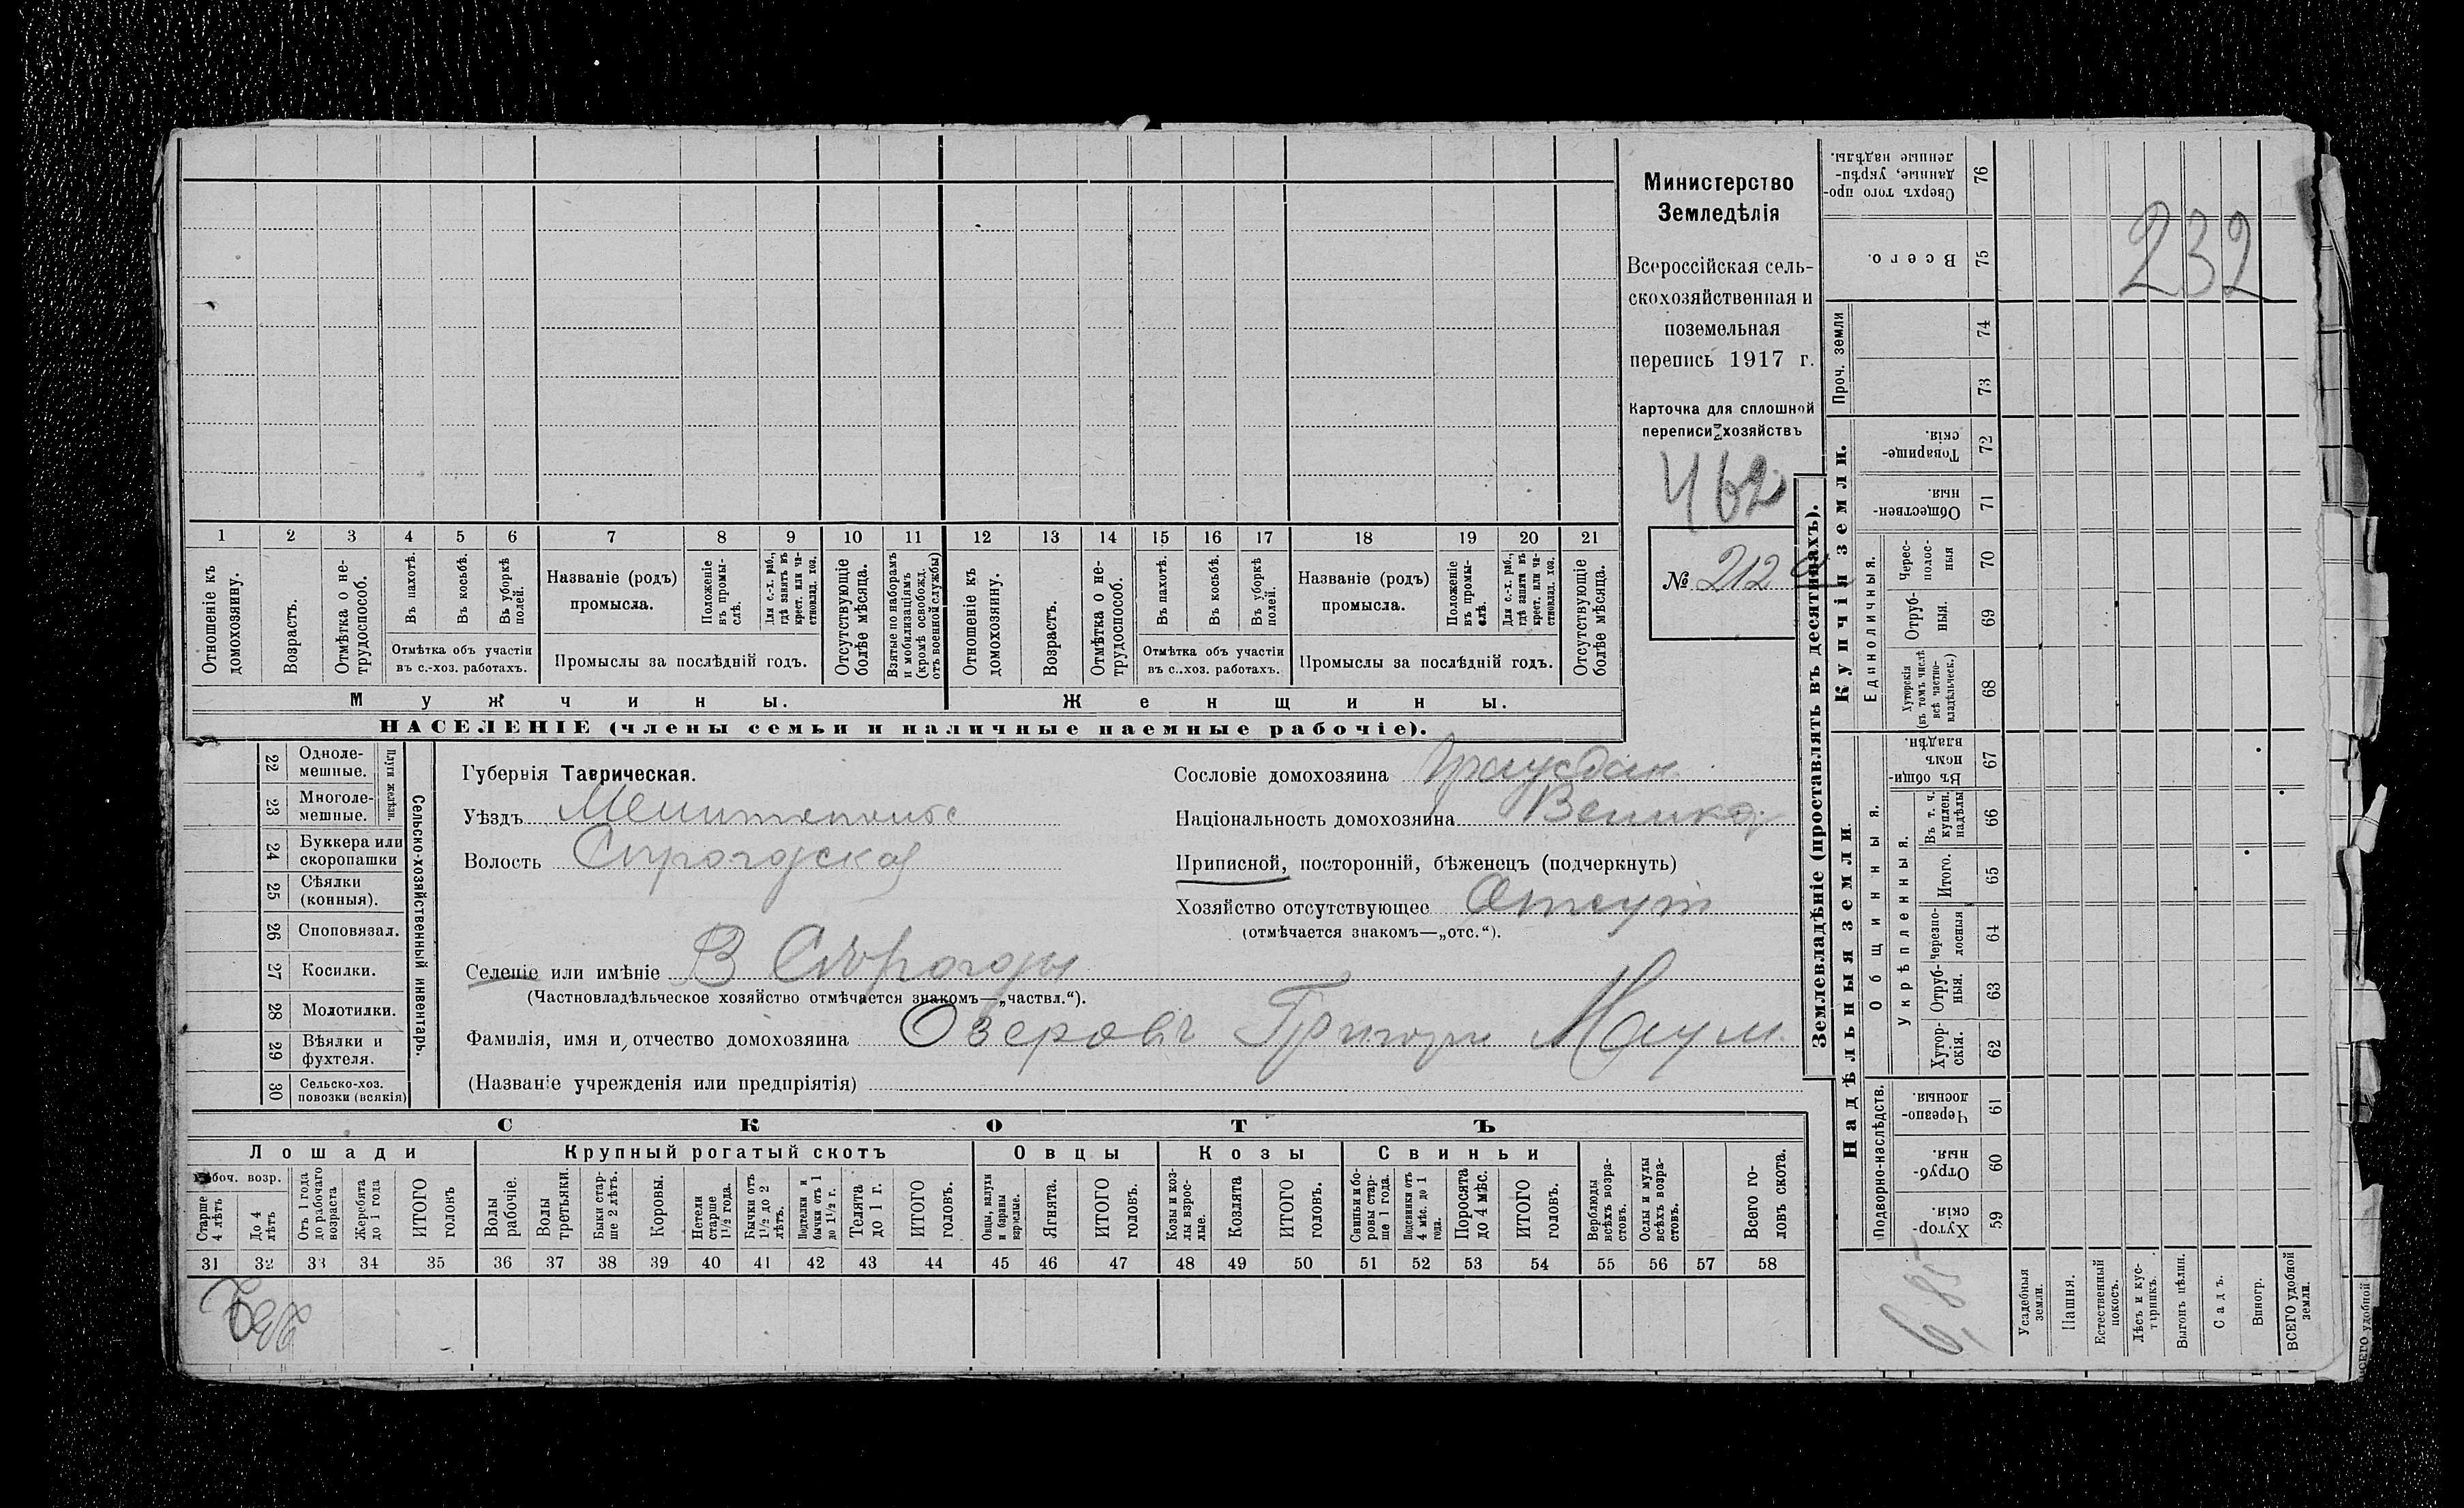 Министерство
Земледѣлія
Всероссійская сель-
скохозяйственная и
поземельная
перепись 1917 г.
Карточка для сплошной
переписи хозяйствъ
462
№ 212 а
1 2 3 4 5 6 7 8 9 10 11 12 13 14 15 16 17 18 19 20 21
Отношеніе къ домохозяину.
Возрастъ.
Отмѣтка о не-
трудоспособ.
Въ пахотѣ.
Въ косьбѣ.
Въ уборкѣ полей.
Отмѣтка объ участіи
въ с.-хоз. работахъ.
Названіе (родъ)
промысла.
Положеніе въ промы-
слѣ.
Для с.-х. раб., гдѣ занятъ въ крест. или ча-
стновлад. хоз.
Промыслы за послѣдній годъ.
Отсутствующіе болѣе мѣсяца.
Взятые по наборамъ и мобилизаціямъ (кромѣ освобожд. отъ военной службы)
Отношеніе къ домохозяину.
Возрастъ.
Отмѣтка о не-
трудоспособ.
Въ пахотѣ.
Въ косьбѣ.
Въ уборкѣ полей.
Отмѣтка объ участіи
въ с.-хоз. работахъ.
Названіе (родъ)
промысла.
Положеніе въ промы-
слѣ.
Для с.-х. раб., гдѣ заняти въ крест. или ча-
стновлад. хоз.
Промыслы за послѣдній годъ.
Отсутствующіе болѣе мѣсяца.
Мужчины. Женщины.
НАСЕЛЕНІЕ (члены семьи и наличные наемные рабочіе).
22 Одноле-
мешные.
23 Многоле-
мешные.
Плуги желѣзн.
24 Буккера или
скоропашки
25 Сѣялки
(конныя).
26 Сноповязал.
27 Косилки.
28 Молотилки.
29 Вѣялки и
фухтеля.
30 Сельско-хоз.
повозки (всякія)
Сельско-хозяйственный инвентарь.
Губернія Таврическая.
Уѣздъ Мелитопольс
Волость Сирогозская
Селеніе или имѣніе В Сѣрогозы
(Частновладѣльческое хозяйство отмѣчается знакомъ—„частвл.“).
Фамилія, имя и отчество домохозяина Озеровъ Григори Наум.
(Названіе учрежденія или предпріятія)
Сословіе домохозяина Граждан
Національность домохозяина Велико
Приписной, посторонній, бѣженецъ (подчеркнуть)
Хозяйство отсутствующее Отсут
(отмѣчается знакомъ—„отс.“).
СКОТЪ
Лошади Крупный рогатый скотъ Овцы Козы Свиньи
Рабоч. возр.
Старше 4 лѣтъ
До 4 лѣтъ
Отъ 1 года до рабочаго возраста
Жеребята до 1 года
ИТОГО головъ
Волы рабочіе.
Волы третьяки.
Быки стар-
ше 2 лѣтъ.
Коровы.
Нетели старше 1 1/2 года.
Бычки отъ 1 1/2 до 2 лѣтъ.
Подтелки и бычки отъ 1 до 1 1/2 г.
Телята до 1 г.
ИТОГО головъ.
Овцы, валухи и бараны взрослые.
Ягнята.
ИТОГО головъ.
Козы и коз-
лы взрос-
лые.
Козлята
ИТОГО головъ.
Свиньи и бо-
ровы стар-
ше 1 года.
Подсвинки отъ 4 мѣс. до 1 года.
Поросята до 4 мѣс.
ИТОГО головъ.
Верблюды всѣхъ возра-
стовъ.
Ослы и мулы всѣхъ возра-
стовъ.
Всего го-
ловъ скота.
31 32 33 34 35 36 37 38 39 40 41 42 43 44 45 46 47 48 49 50 51 52 53 54 55 56 57 58
232
Землевладѣніе (проставлять въ десятинахъ).
Надѣльныя земли. Купчія земли. Проч. земли
Подворно-наслѣдств. Общинныя. Укрѣпленныя. Единоличныя.
Хутор-
скія. 59
Отруб-
ныя. 60
Черезпо-
лосныя. 61
Хутор-
скія. 62
Отруб-
ныя. 63
Черезпо-
лосныя 64
Итого. 65
Въ т. ч. куплен. надѣлы 66
Въ общин-
номъ владѣн. 67
Хуторскія (въ томъ числѣ всѣ частно-
владѣльческ.) 68
Отруб-
ныя. 69
Черес-
полос-
ныя 70
Обществен-
ныя 71
Товарище-
скія. 72
73
74
Всего. 75
Сверхъ того про-
данные, укрѣп-
ленные надѣлы. 76
232
Усадебныя земли.
Пашня.
Естественный покосъ.
Лѣсъ и кус-
тарникъ.
Выгонъ цѣлин.
Садъ.
Виногр.
ВСЕГО удобной земли.
ВСЕГО удобной